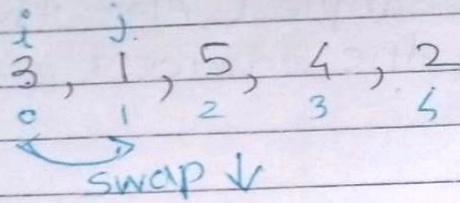 i j
3, 1, 5, 4, 2
0 1 2 3 4
swap ↓